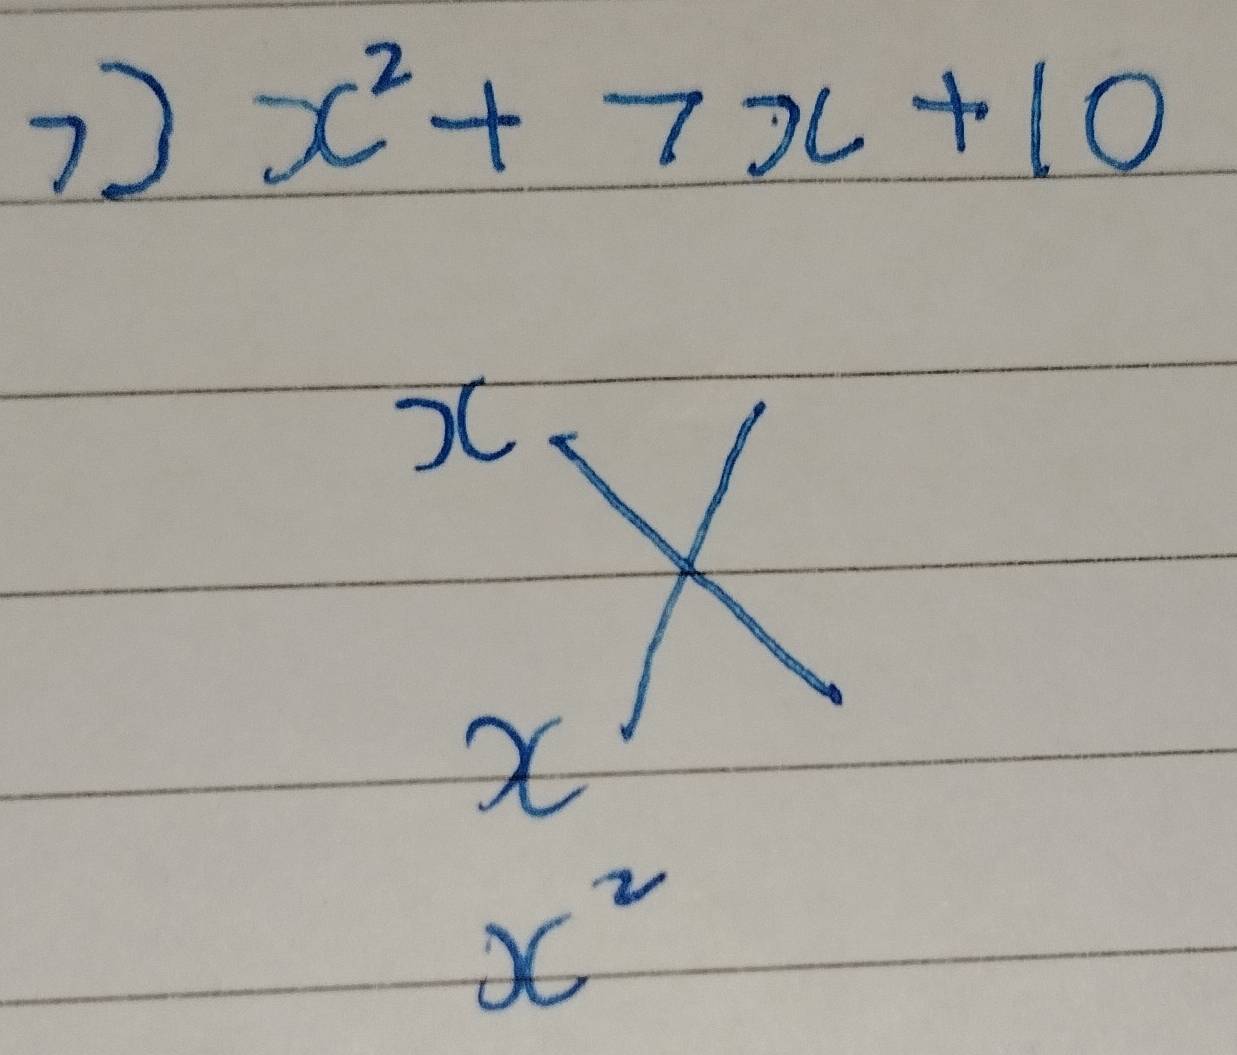 7) x² + 7x + 10
x
x
x²